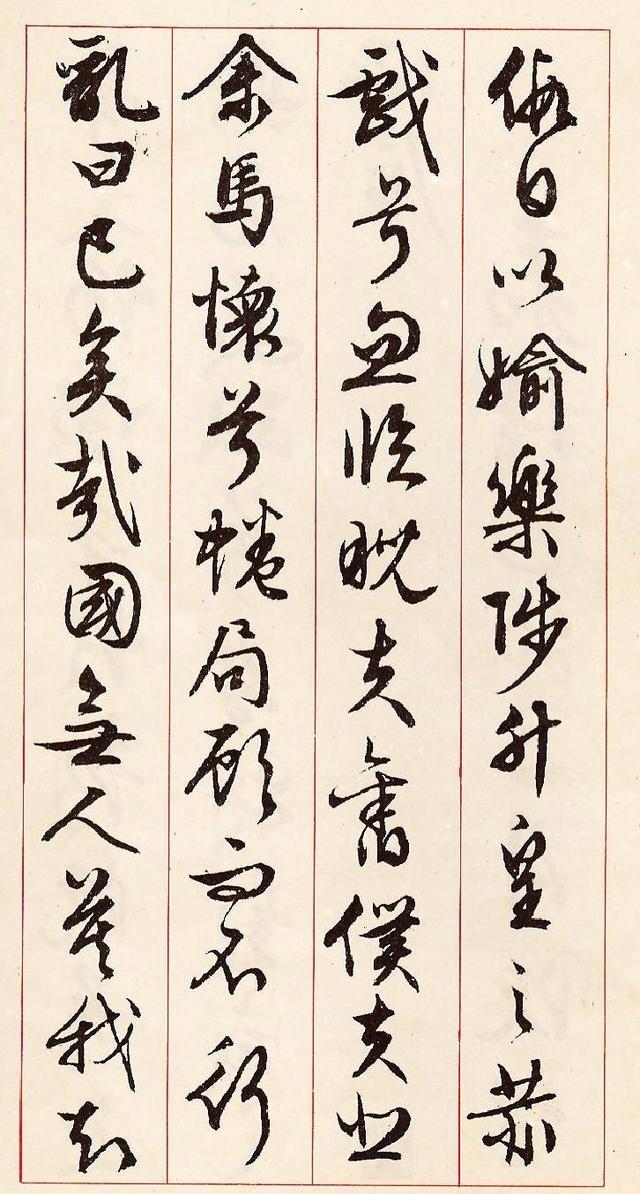 假日以婾樂陟升皇之赫
戲兮忽臨睨夫舊僕夫悲
余馬懷兮蜷局顧而不行
亂曰已矣哉國無人莫我知